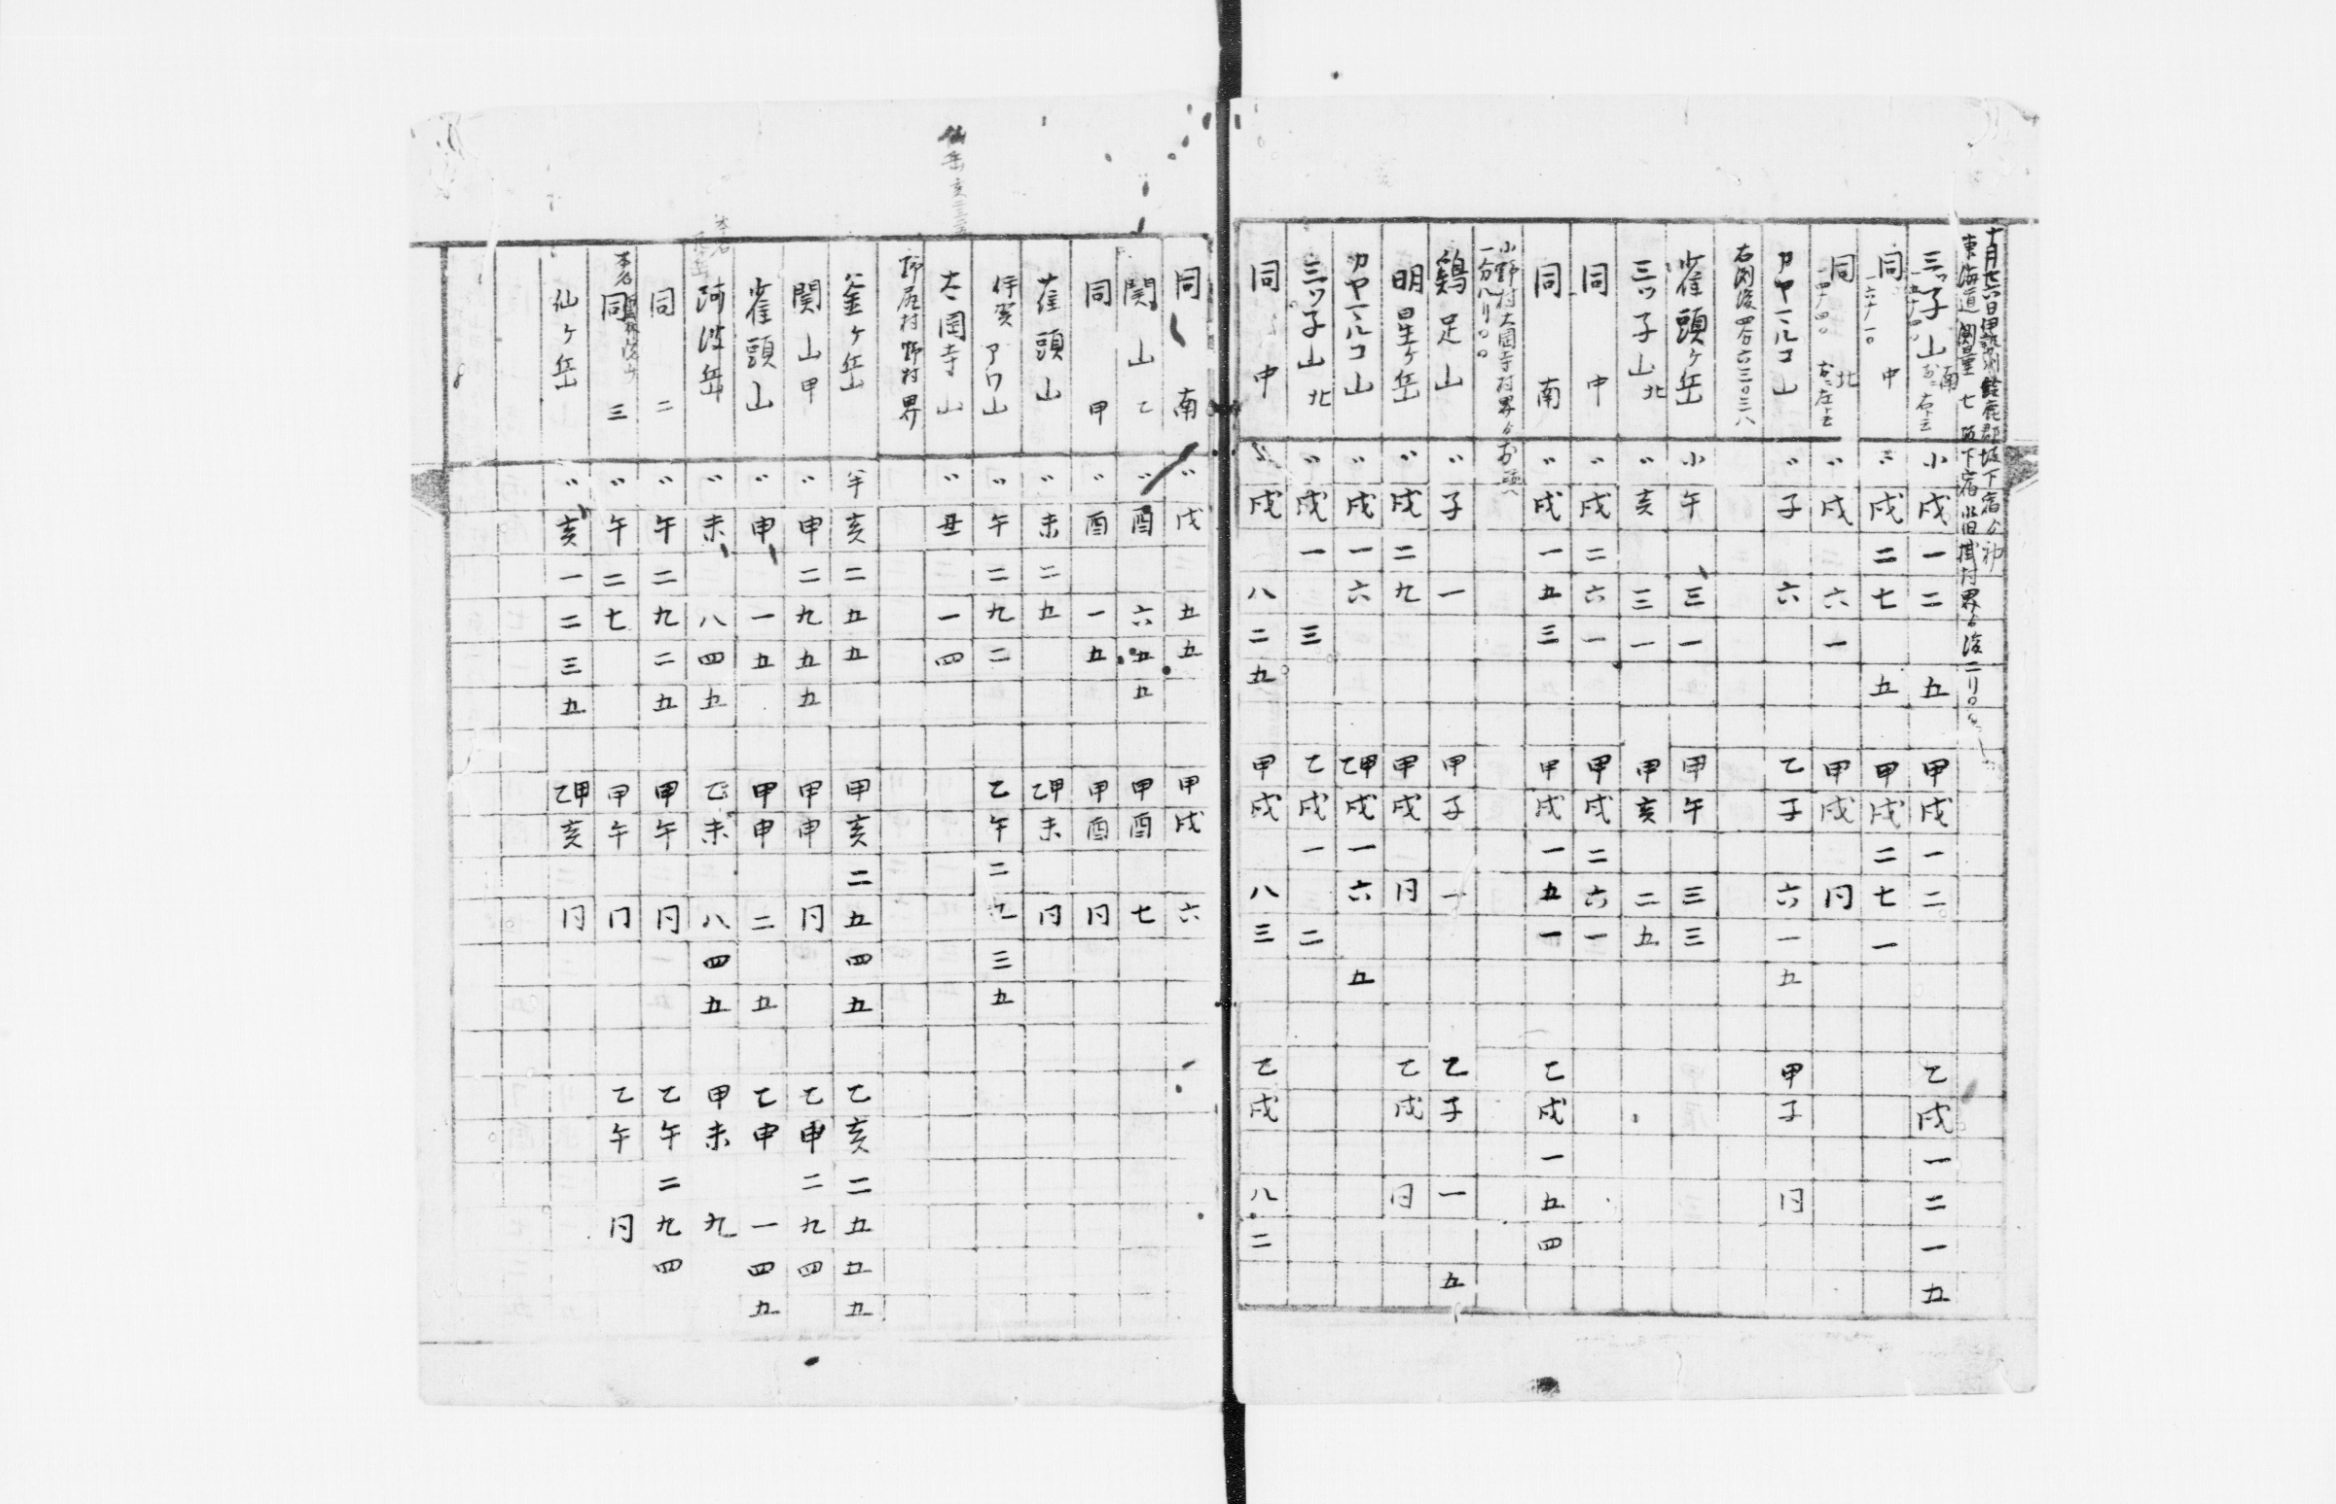 十月廿六日 勢州鈴鹿郡坂下宿ゟ初
東海道測量 七 坂下宿 沓掛村界ゟ後二リ〇〇
三ツ子山南 小戌一二 五 甲戌一二 乙戌一二一五
同 中 〃戌二七 五 甲戌二七一
同 北 〃戌 六一 甲戌 円
カヤマルコ山 〃子 六 乙子 六一五 甲子 円
雀頭ケ岳 小午 三一 甲午 三三
三ツ子山北 〃亥 三一 甲亥 二五
同 中 〃戌二六一 甲戌二六一
同 南 〃戌一五三 甲戌一五一 乙戌一五四
小野村大岡寺村界ゟ
鶏足山 〃子 一 甲子 一 乙子 一 五
明星ケ岳 〃戌二九 甲戌 円 乙戌 円
カヤマルコ山 〃戌一六 乙甲戌一六 五
三ツ子山北 〃戌一 三 乙戌一 二
同 中 〃戌 八二五 甲戌 八三 乙戌 八二
同 南 〃戌 五五 甲戌 六
関山乙 〃酉 六五五 甲酉 七
同 甲 〃酉 一五 甲酉 円
雀頭山 〃未二五 乙甲未 円
伊賀アワ山 〃午二九二 乙午二九三五
太岡寺山 〃丑 一四
仙岳亥
野尻村野村界
釜ケ岳 亥二五五 甲亥二五四五 乙亥二五五五
関山甲 〃申二九五五 甲申 円 乙申二九四
雀頭山 〃申 一五 甲申 二 五 乙申 一四五
阿波岳 〃未 八四五 乙未 八四五 甲未 九
同 二 〃午二九二五 甲午 円 乙午二九四
同 三 〃午二七 甲午 円 乙午 円
本名
仙ケ岳 〃亥一二三五 乙甲亥 円